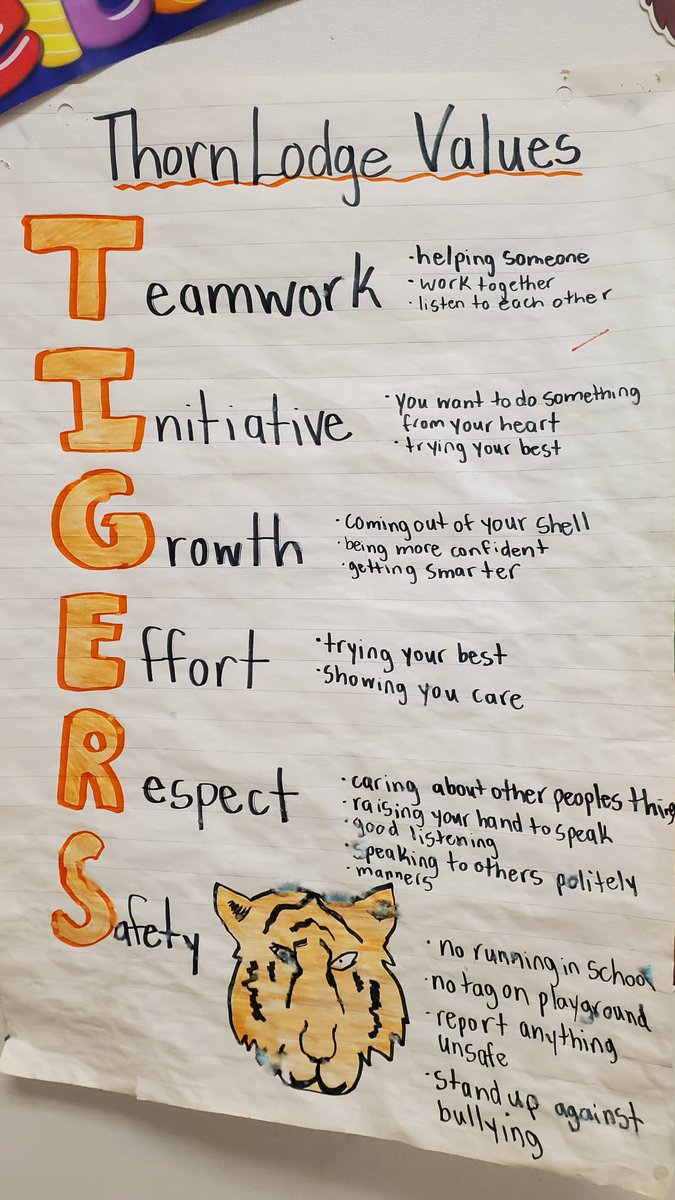 ThornLodge Values
Teamwork
·helping someone
·work together
·listen to each other
Initiative
·you want to do something
from your heart
·trying your best
Growth
·coming out of your shell
·being more confident
·getting smarter
Effort
·trying your best
·showing you care
Respect
·caring about other peoples thing
·raising your hand to speak
·good listening
·speaking to others politely
·manners
Safety
·no running in school
·no tag on playground
·report anything
unsafe
·stand up against
bullying